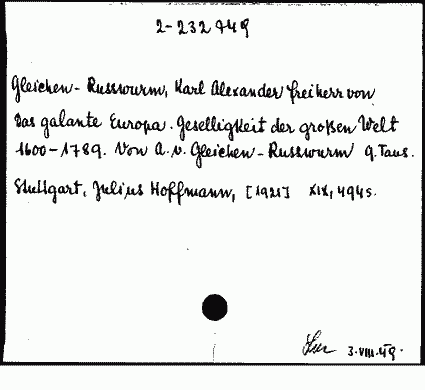 2-232 749
Gleichen-Russwurm, Karl Alexander Freiherr von
Das galante Europa. Geselligkeit der großen Welt
1600-1789. Von A. v. Gleichen-Russwurm 9. Taus.
Stuttgart, Julius Hoffmann, [1921] XIX, 494 s.
3.VIII.49.